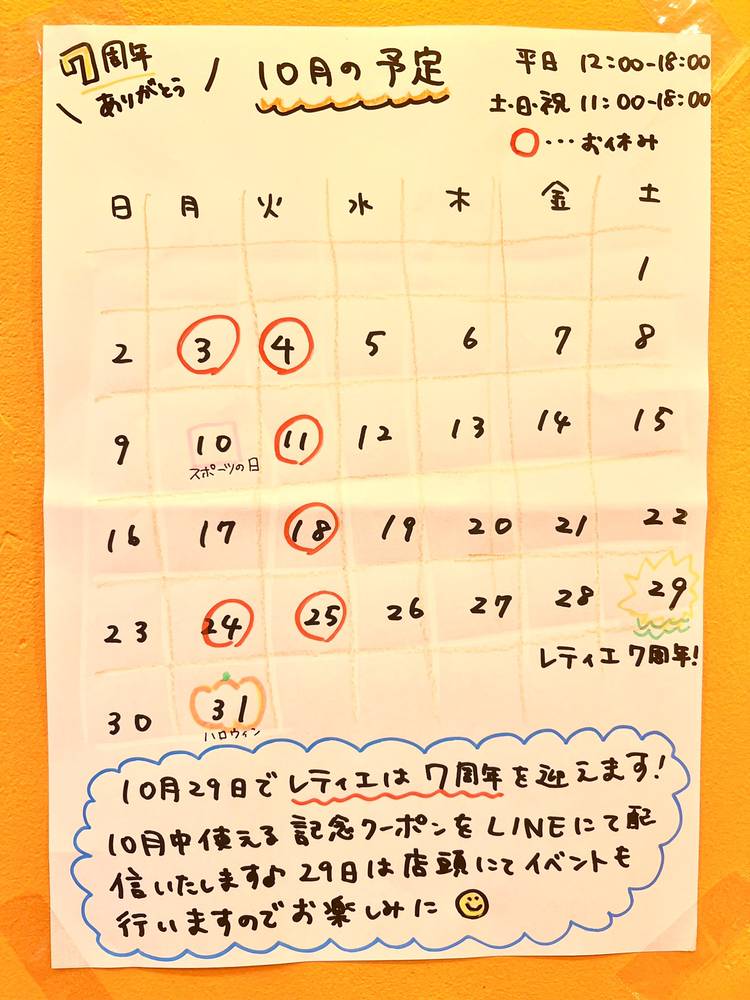 7周年
ありがとう
10月の予定
平日 12:00-18:00
土・日・祝 11:00-18:00
○…お休み
日 月 火 水 木 金 土
1
2 3 4 5 6 7 8
9 10 11 12 13 14 15
スポーツの日
16 17 18 19 20 21 22
23 24 25 26 27 28 29
レティエ 7周年!
30 31
ハロウィン
10月29日でレティエは7周年を迎えます!
10月中使える記念クーポンをLINEにて配
信いたします♪ 29日は店頭にてイベントも
行いますのでお楽しみに